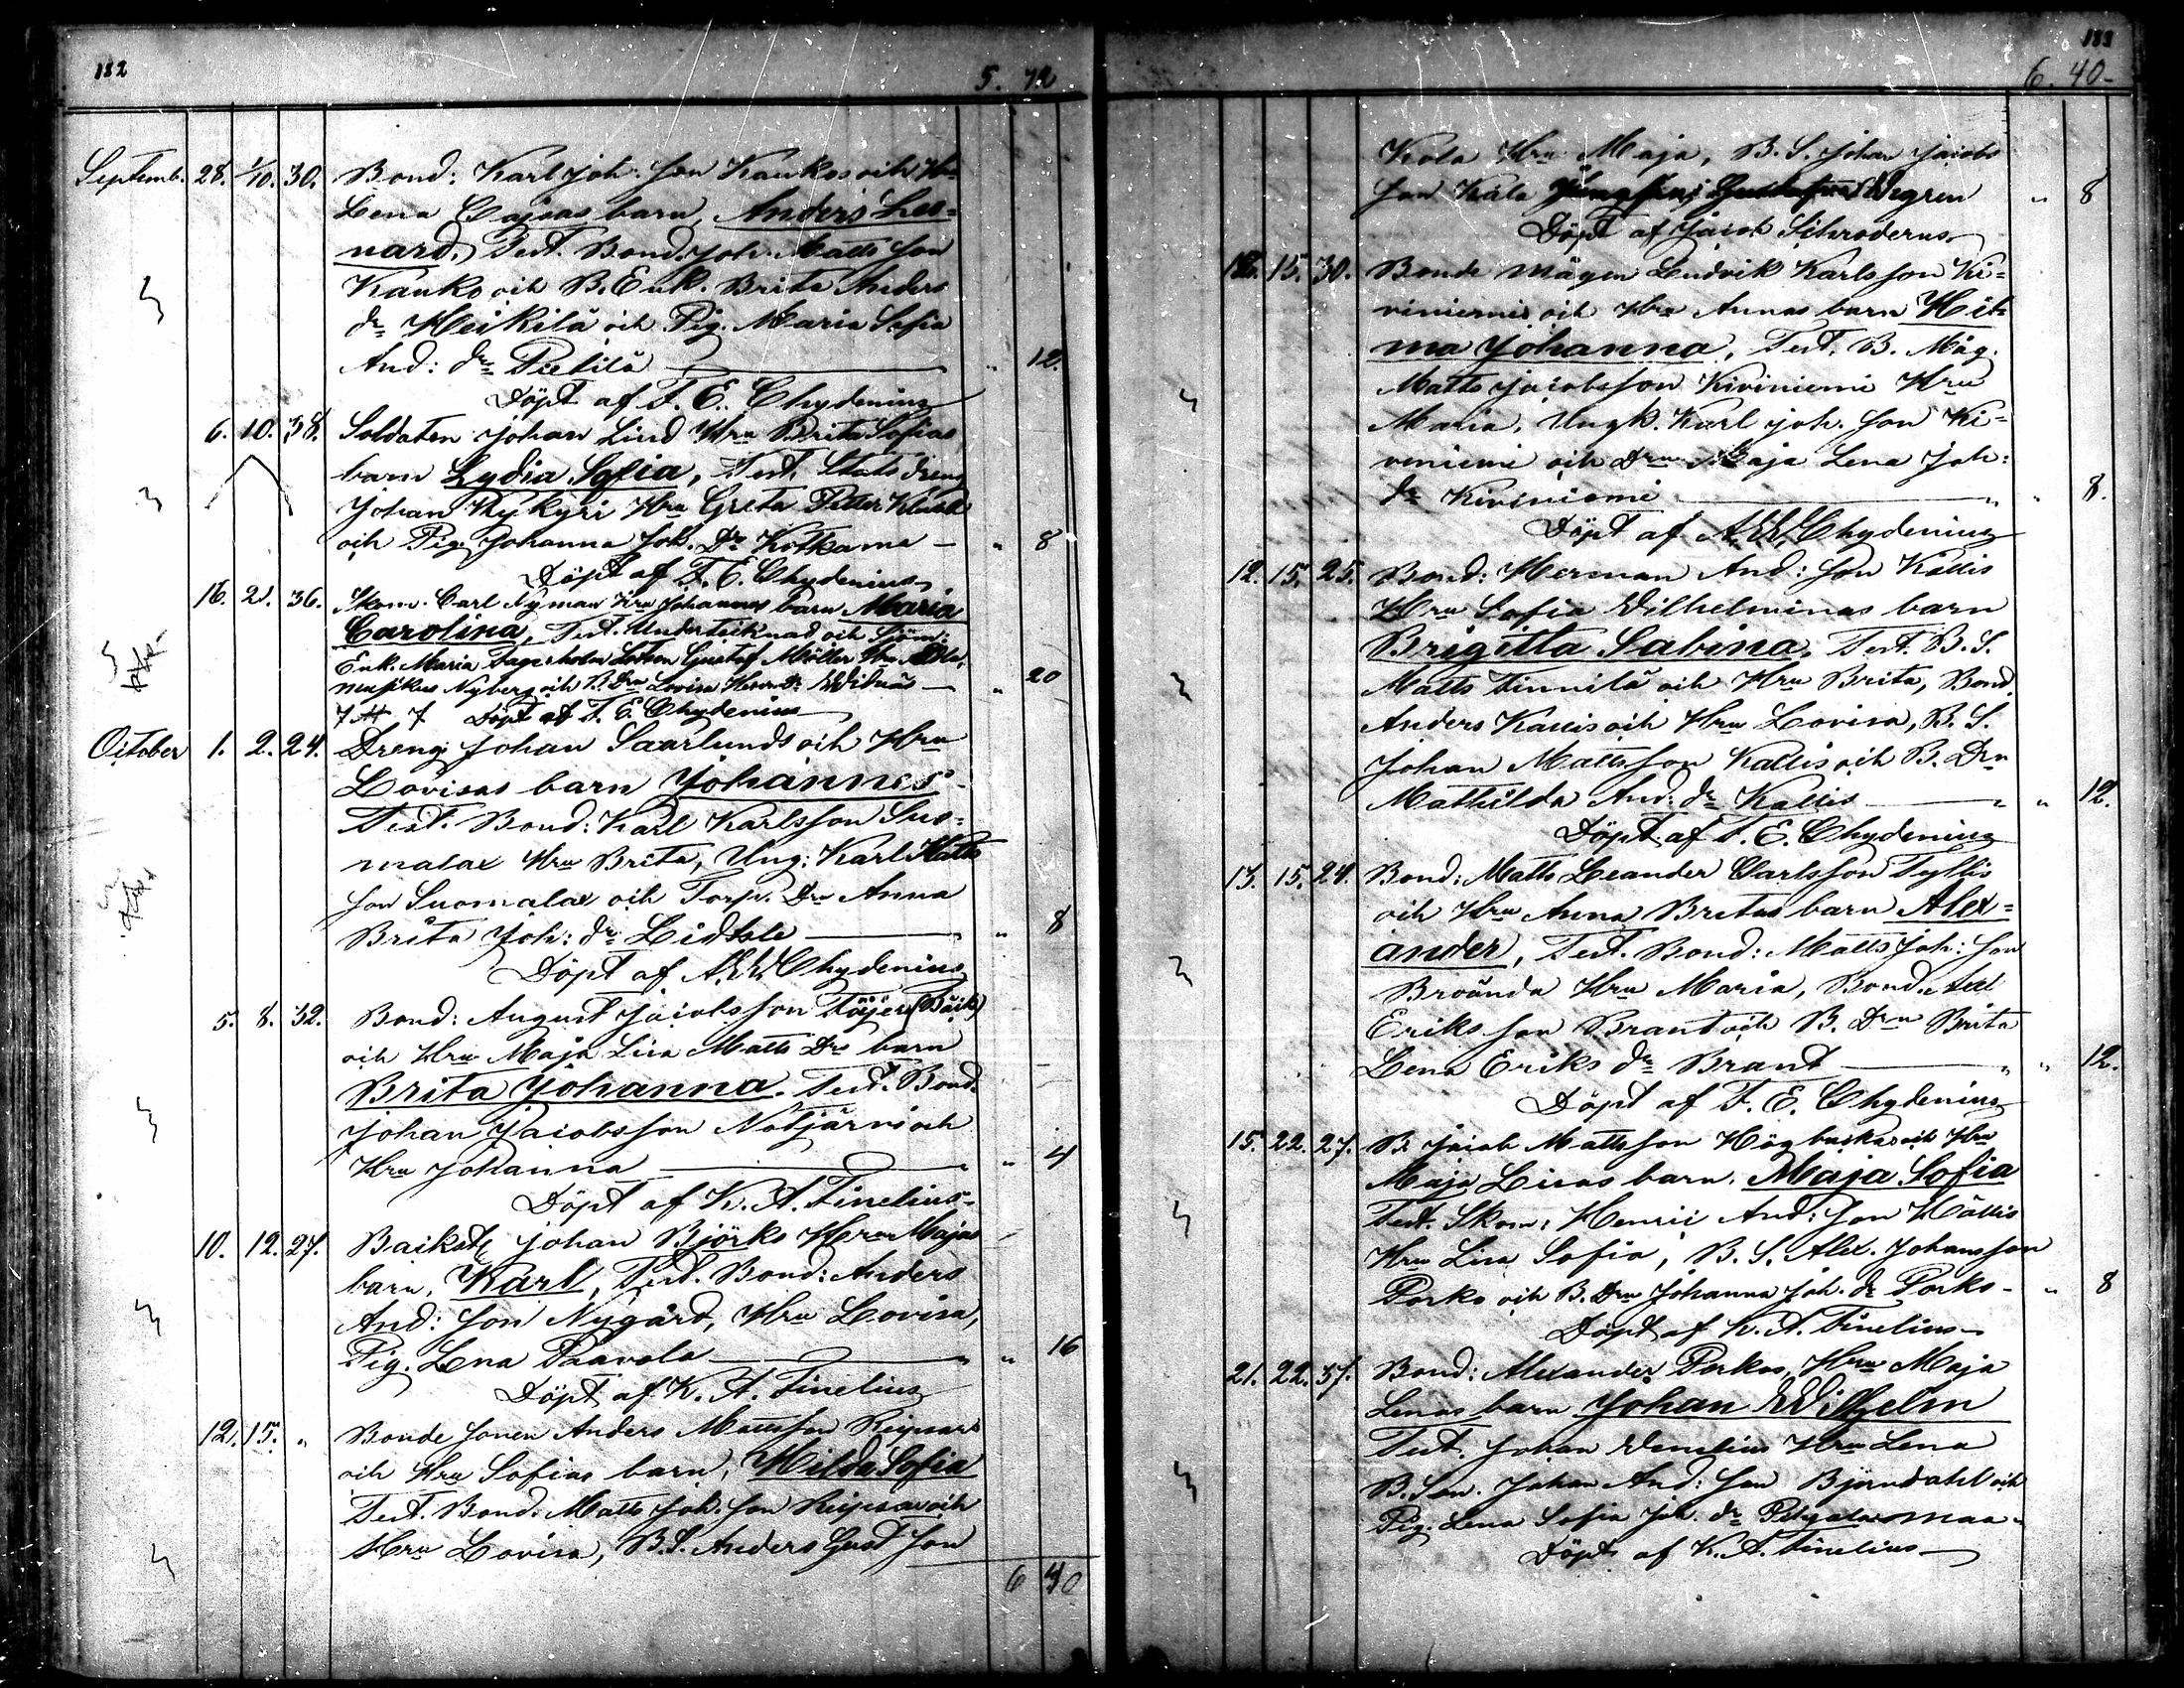 182
5. 72
Septemb. 28. 1/10. 30. Bond: Karl Joh. Son Kaukos och Hu
Lena Cajsas barn, Anders Leo=
nard, Test. Bond. Joh. Matts Son
Kauko och B. Enk. Brita Anders
dr Heikilä och Pig. Maria Sofia
And: dr Pietilä " 12.
Döpt af F. E. Chydenius
6. 10. 38. Soldaten Johan Lind Hru Brita Sofias
barn Lydia Sofia, Test. Stats dreng
Johan Kykyri Hru Greta Petter
och Pig. Johanna Joh. Dr Kotkama " 8
Döpt af F. E. Chydenius
16. 21. 36. Skom. Carl Nyman Hru Johannas barn Maria
Carolina, Test. Undertecknad och Sjöm:
Enk. Maria Fagerholm Gustaf Möller Hru
musikus Nyberg och B. Dru Lovisa " 20
Döpt af F. E. Chydenius
October 1. 2. 24. Dreng Johan Saarlunds och Hru
Lovisas barn Johannes
Test. Bond: Karl Karlsson Suo=
malax Hru Brita, Ung: Karl Matts
Son Suomalax och Torp. Dru Anna
Brita Joh: dr Lidtele " 8
Döpt af A. W. Chydenius
5. 8. 32. Bond: August Jacobsson (Bäck)
och Hru Maja Lisa Matts Drs barn
Brita Johanna. Test. Bond.
Johan Jacobsson Notjärvi och
Hru Johanna " " 4
Döpt af K. A. Finelius
10. 12. 27. Johan Björks Hru Majas
barn, Karl, Test. Bond: Anders
And: Son Nygård, Hru Lovisa,
Pig. Lena Paavola " " 16
Döpt af K. A. Finelius
12. 15. " Bonde Sonen Anders Mattsson
och Hru Sofias barn, Hilda Sofia
Test. Bond. Matts Joh. Son och
Hru Lovisa, B. S. Anders Gust Son
6 40
183
6. 40-
Kola Hru Maja, B. S. Johan Jacobs
Son Kåla Wegren " 8
Döpt af Jacob Schroderus
12. 15. 30. Bonde Mågen Lendvik Karlsson Ki=
viniemis och Hru Annas barn Hil
ma Johanna, Test. B. Måg.
Matts Jacobsson Kiviniemi Hru
Maria, Ungk. Karl Joh. Son Ki=
viniemi och Dru Maja Lena Joh:
dr Kiviniemi " " 8.
Döpt af A. W. Chydenius
12. 15. 25. Bond: Herman And: Son Kallis
Hru Sofia Wilhelminas barn
Brigitta Sabina, Test. B. S.
Matts Finnilä och Hru Brita, Bond.
Anders Kallis och Hru Lovisa, B. S.
Johan Mattsson Kallis och B. Dru
Mathilda And: dr Kallis " " 12.
Döpt af F. E. Chydenius
13. 15. 24. Bond: Matts Leander Carlsson Tyllis
och Hru Anna Britas barn Alex=
ander, Test. Bond: Matts Joh: Son
Broända Hru Maria, Bond. Axel
Eriks Son Brant och B. Dru Brita
Lena Eriks dr Brand " " 12.
Döpt af F. E. Chydenius
15. 22. 27. B. Jacob Mattsson Högbackas och Hru
Maja Lisas barn, Maja Sofia
Test. Skom: Henric And: Son Kållis
Hru Lisa Sofia, B. S. Alex. Johansson
Porko och B. Dru Johanna Joh. dr Porko- " 8
Döpt af K. A. Finelius
21. 22. 37. Bond: Alexander Porkos, Hru Maja
Lenas barn Johan Wilhelm
Test. Johan Venelius Hru Lena
B. Son. Johan And: Son Björndahl och
Pig. Lena Sofia Joh. dr
Döpt af K. A. Finelius